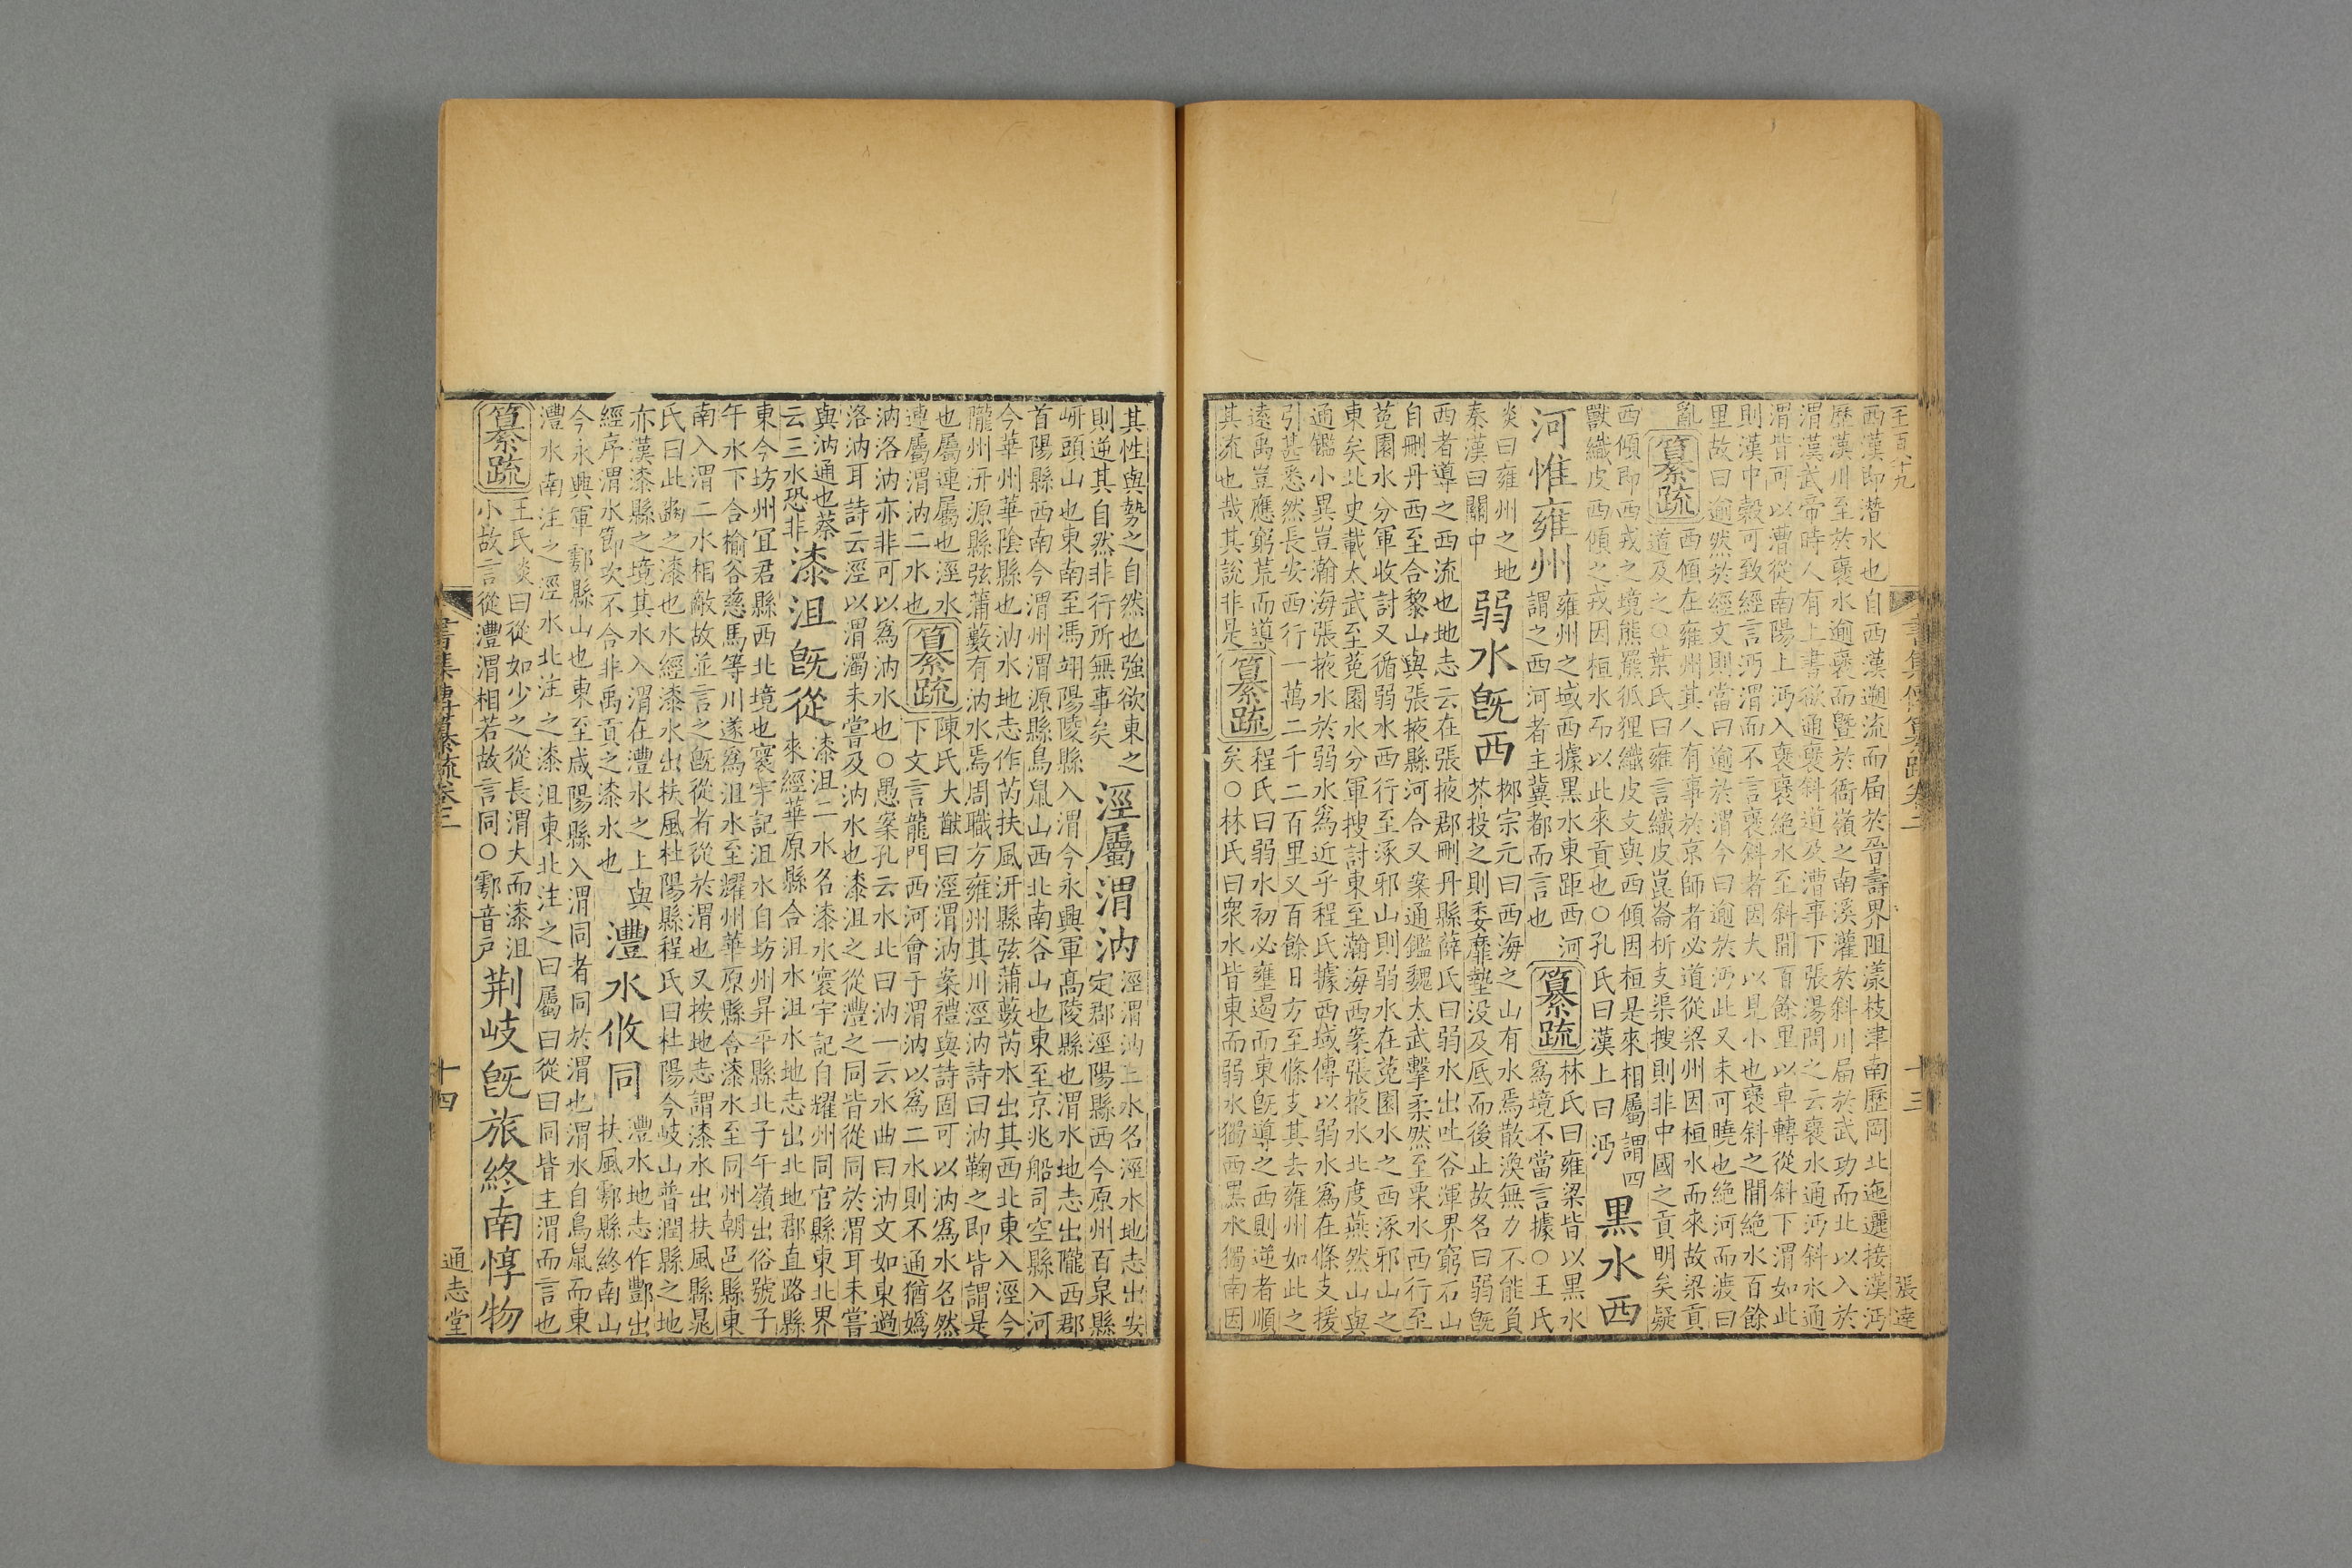 王百十九
張達
西漢即潛水也自西漢遡流而届於晉壽界阻漾枝津南歷岡北迤邐接漢沔
歷漢川至於褒水逾褒而曁於衙嶺之南溪灌於斜川届於武功而北以入於
渭漢武帝時人有上書欲通褒斜道及漕事下張湯問之云褒水通沔斜水通
渭皆可以漕從南陽上沔入褒褒絶水至斜閒百餘里以車轉從斜下渭如此
則漢中穀可致經言沔渭而不言褒斜者因大以見小也褒斜之閒絶水百餘
里故曰逾然於經文則當曰逾於渭今曰逾於沔此又未可曉也絶河而渡曰
亂
纂疏
西傾在雍州其人有事於京師者必道從梁州因桓水而來故梁貢
道及之○葉氏曰雍言織皮崑崙析支渠搜則非中國之貢明矣疑
西傾即西戎之境熊羆狐狸織皮文與西傾因桓是來相屬謂四
獸織皮西傾之戎因桓水而以此來貢也○孔氏曰漢上曰沔
黒水西
河惟雍州
雍州之域西據黑水東距西河
謂之西河者主冀都而言也
纂疏
林氏曰雍梁皆以黑水
爲境不當言據○王氏
炎曰雍州之地
秦漢曰關中
弱水旣西
柳宗元曰西海之山有水焉散渙無力不能負
芥投之則委靡墊没及底而後止故名曰弱旣
西者導之西流也地志云在張掖郡刪丹縣薛氏曰弱水出吐谷渾界窮石山
自刪丹西至合黎山與張掖縣河合又案通鑑魏太武擊柔然至栗水西行至
菟園水分軍收討又循弱水西行至涿邪山則弱水在菟園水之西涿邪山之
東矣北史載太武至菟園水分軍搜討東至瀚海西案張掖水北度燕然山與
通鑑小異豈瀚海張掖水於弱水爲近乎程氏據西域傳以弱水爲在條支援
引甚悉然長安西行一萬二千二百里又百餘日方至條支其去雍州如此之
遠禹豈應窮荒而導
其流也哉其說非是
纂疏
程氏曰弱水初必壅遏而東旣導之西則逆者順
矣○林氏曰衆水皆東而弱水獨西黑水獨南因
書集傳纂疏卷二
十三
其性與勢之自然也強欲東之
則逆其自然非行所無事矣
涇屬渭汭
涇渭汭三水名涇水地志出安
定郡涇陽縣西今原州百泉縣
岍頭山也東南至馮翊陽陵縣入渭今永興軍髙陵縣也渭水地志出隴西郡
首陽縣西南今渭州渭源縣鳥鼠山西北南谷山也東至京兆船司空縣入河
今華州華陰縣也汭水地志作芮扶風汧縣弦蒲藪芮水出其西北東入涇今
隴州汧源縣弦蒲藪有汭水焉周職方雍州其川涇汭詩曰汭鞠之即皆謂是
也屬連屬也涇水
連屬渭汭二水也
纂疏
陳氏大猷曰涇渭汭案禮與詩固可以汭爲水名然
下文言龍門西河會于渭汭以爲二水則不通猶嬀
汭洛汭亦非可以爲汭水也○愚案孔云水北曰汭一云水曲曰汭文如東過
洛汭耳詩云涇以渭濁未嘗及汭水也漆沮之從灃之同皆從同於渭耳未嘗
與汭通也蔡
云三水恐非
漆沮旣從
漆沮二水名漆水寰宇記自耀州同官縣東北界
來經華原縣合沮水沮水地志出北地郡直路縣
東今坊州宜君縣西北境也寰宇記沮水自坊州昇平縣北子午嶺出俗號子
午水下合榆谷慈馬等川遂爲沮水至耀州華原縣合漆水至同州朝邑縣東
南入渭二水相敵故並言之旣從者從於渭也又按地志謂漆水出扶風縣晁
氏曰此豳之漆也水經漆水出扶風杜陽縣程氏曰杜陽今岐山普潤縣之地
亦漢漆縣之境其水入渭在灃水之上與
經序渭水節次不合非禹貢之漆水也
灃水攸同
灃水地志作酆出
扶風鄠縣終南山
今永興軍鄠縣山也東至咸陽縣入渭同者同於渭也渭水自鳥鼠而東
灃水南注之涇水北注之漆沮東北注之曰屬曰從曰同皆主渭而言也
纂疏
王氏炎曰從如少之從長渭大而漆沮
小故言從灃渭相若故言同○鄠音戸
荆岐旣旅終南惇物
書集傳纂疏卷二
十四
通志堂